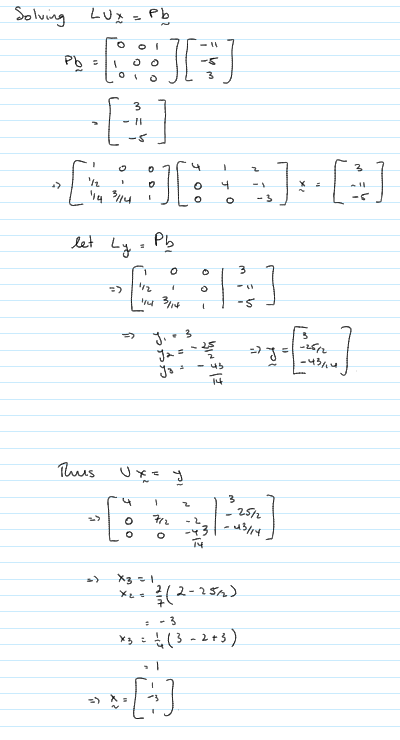 Solving LUx = Pb
Pb = [0 0 1; 1 0 0; 0 1 0] [-11; -5; 3]
= [3; -11; -5]
=> [1 0 0; 1/2 1 0; 1/4 3/14 1] [4 1 2; 0 4 -1; 0 0 -3] x = [3; -11; -5]
let Ly = Pb
=> [1 0 0 | 3; 1/2 1 0 | -11; 1/4 3/14 1 | -5]
=> y1 = 3
y2 = -25/2 => y = [3; -25/2; -43/14]
y3 = -43/14
Thus Ux = y
=> [4 1 2 | 3; 0 7/2 -2 | -25/2; 0 0 -43/14 | -43/14]
=> x3 = 1
x2 = 2/7 (2 - 25/2)
= -3
x3 = 1/4 (3 - 2 + 3)
= 1
=> x = [1; -3; 1]